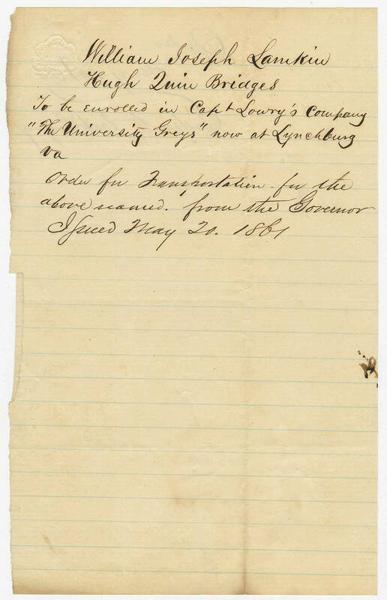 William Joseph Lamkin
Hugh Quin Bridges
To be enrolled in Capt Lowry's Company
"The University Greys" now at Lynchburg
Va
Order for Transportation for the
above named. from the Governor
Issued May 20. 1861